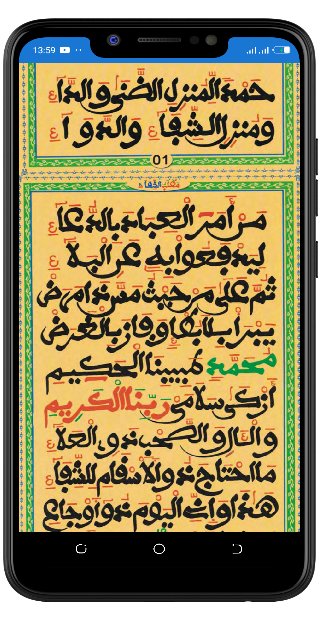 13:59
حمدا لمنزل الضنى والداء
ومنزل الشفاء والدواء
01
من أمر العباد بالدعاء
ليدفعوا به عن البلاء
ثم على من حيث مس ذا مرض
بالشفا وفاز بالغرض
محمد نبينا الحكيم
ازكى سلامي ربنا الكريم
والآل والصحب ذوي العلاء
ما احتاج ذو الاسقام للشفاء
هذا وإني اليوم ذو أوجاع